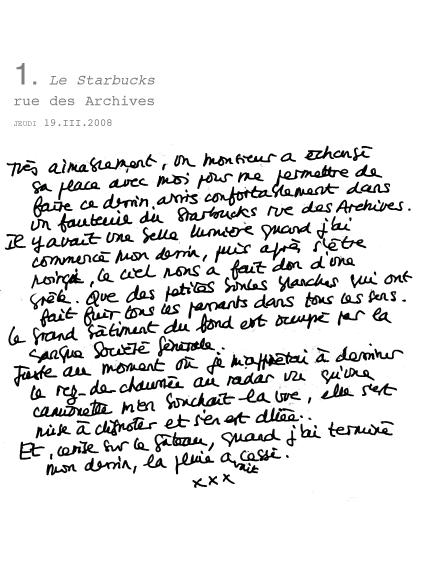 1. Le Starbucks
rue des Archives
JEUDI 19.III.2008
Très aimablement, un monsieur a échangé
sa place avec moi pour me permettre de
faire ce dessin, assis confortablement dans
un fauteuil du Starbucks rue des Archives.
Il y avait une belle lumière quand j'ai
commencé mon dessin, puis après s'être
noirci, le ciel nous a fait don d'une
grêle. Que des petites billes blanches qui ont
fait fuir tous les passants dans tous les sens.
Le grand bâtiment du fond est occupé par la
banque Société Générale.
Juste au moment où je m'apprêtai à dessiner
le rez-de-chaussée au radar vu qu'une
camionette m'en bouchait la vue, elle s'est
mise à clignoter et s'en est allée..
Et, cerise sur le gâteau, quand j'ai terminé
mon dessin, la pluie avait cessé.
xxx